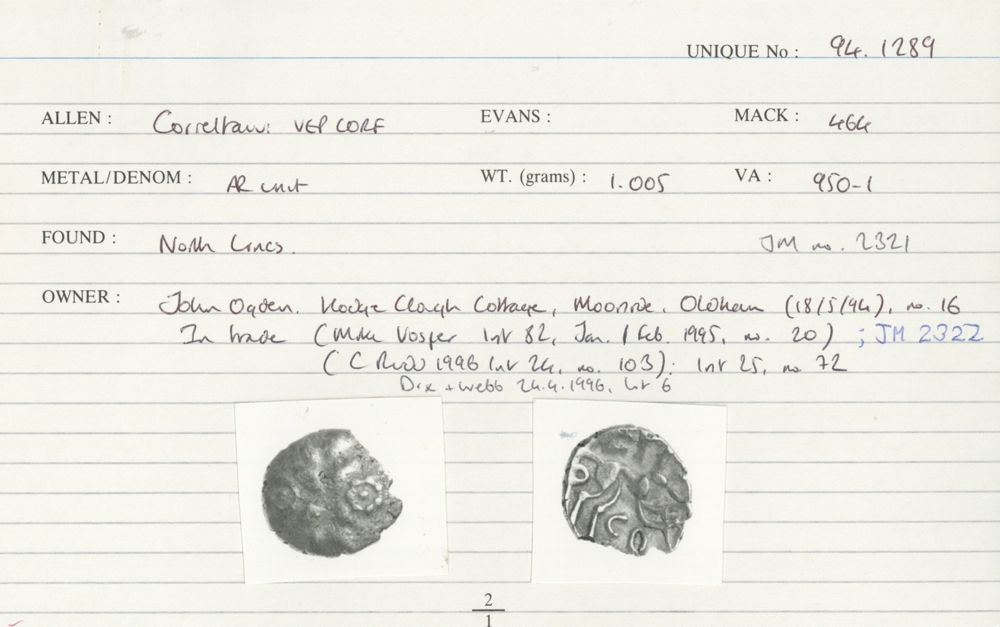 UNIQUE No : 94.1289
ALLEN : Corieltauvi VEP CORF EVANS : MACK : 464
METAL/DENOM : AR unit WT. (grams) : 1.005 VA : 950-1
FOUND : North Lincs. JM no. 2321
OWNER : John Ogden. Hodge Clough Cottage, Moorside, Oldham (18/5/94), no. 16
In trade (Mike Vosper list 82, Jan./Feb. 1995, no. 20) ; JM 2322
(C Rudd 1996 list 24, no. 103); list 25, no 72
Dix + Webb 24.4.1996, lot 6
2
1